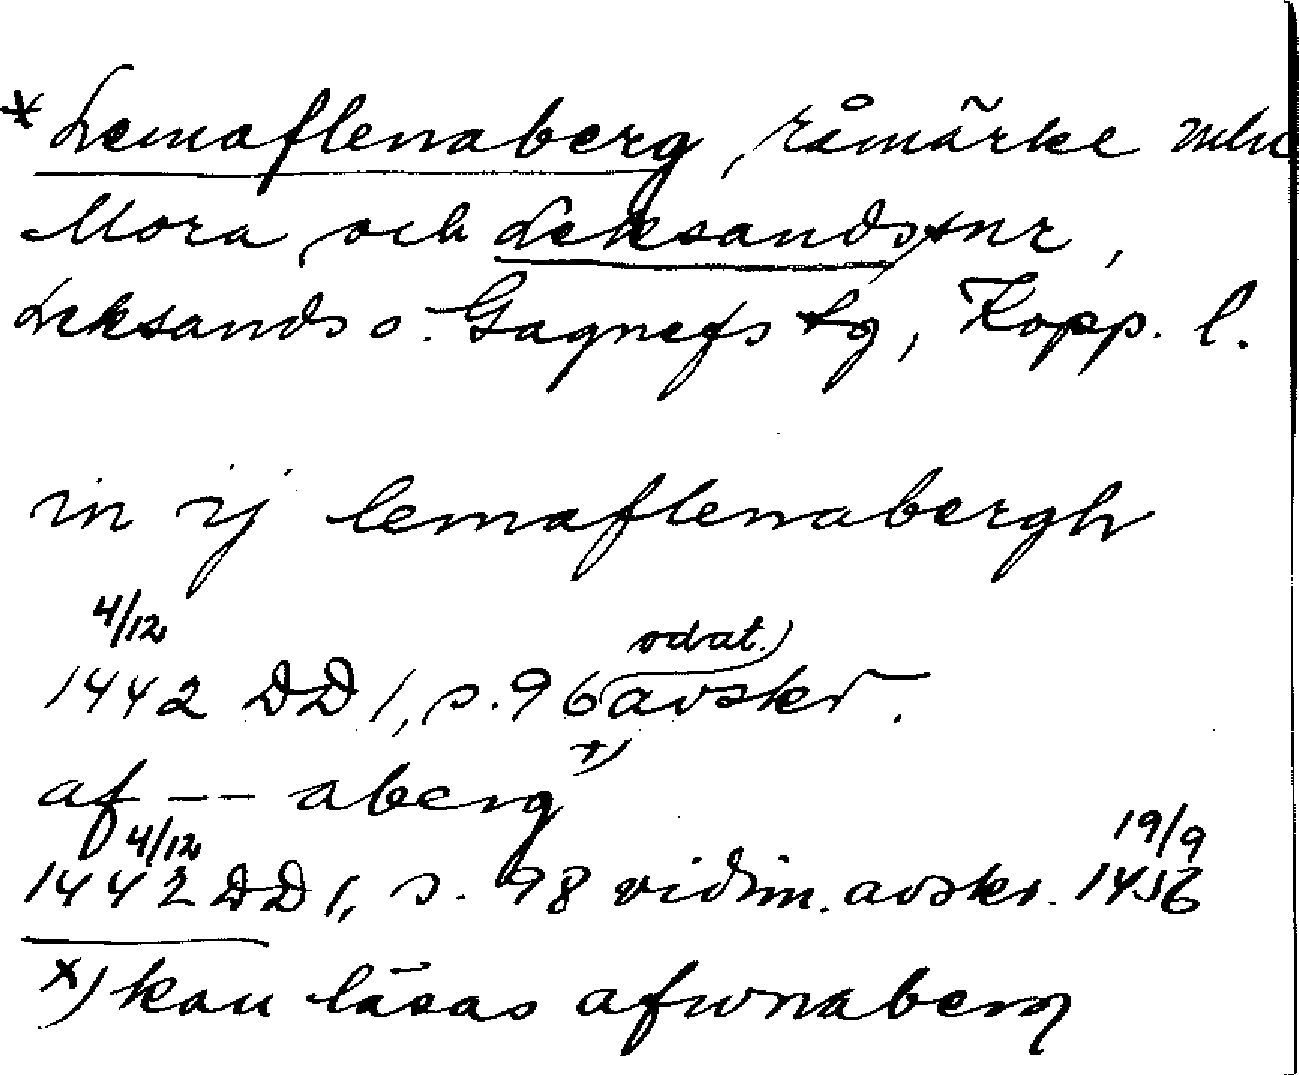 * Lemaflenaberg, råmärke mln
Mora och Leksands snr,
Leksands o. Gagnefs tg, Kopp. l.
in ij lemaflenabergh
4/12
odat.)
1442 DD 1, s. 96 avskr.
af -- aberg x)
4/12 19/9
1442 DD 1, s. 98 vidim. avskr. 1456
x) kan läsas afwnaberg